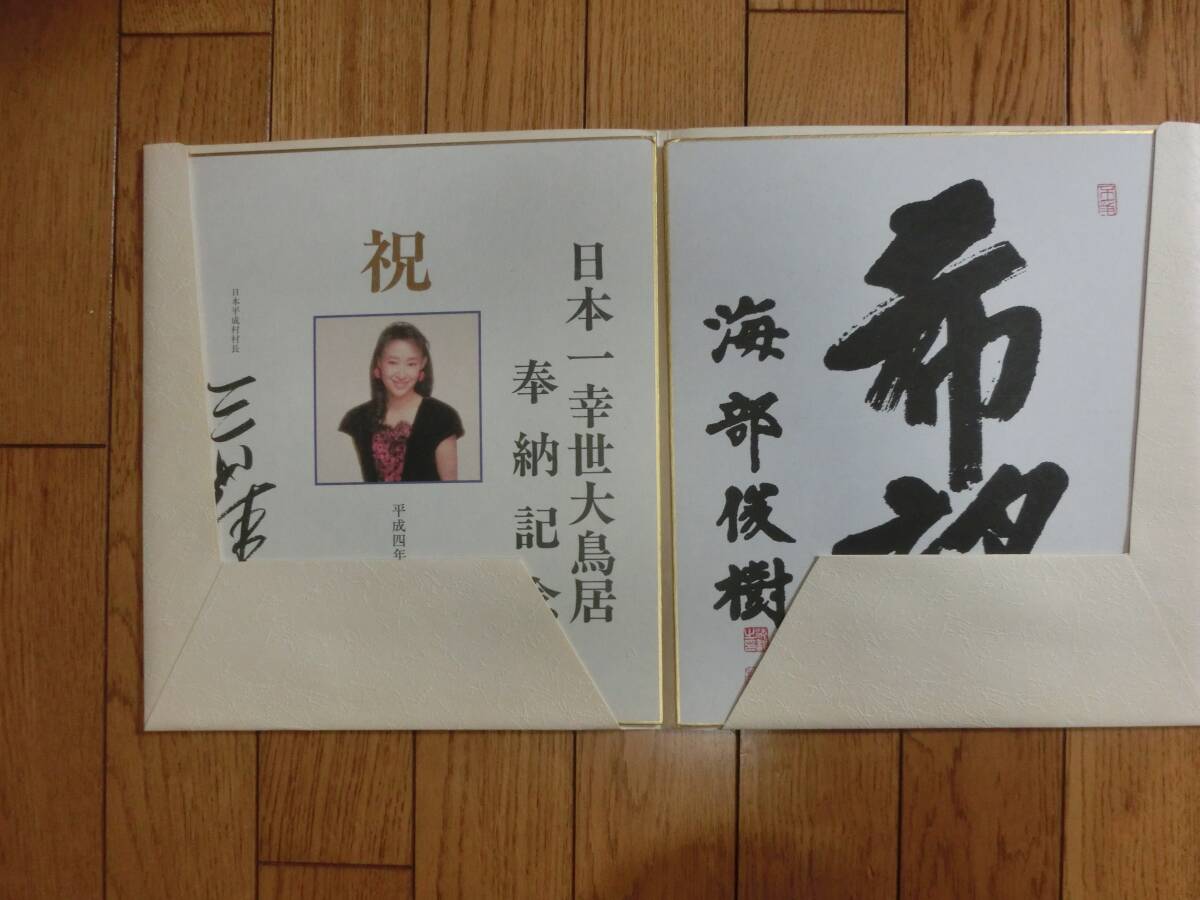 希望
海部俊樹
日本一幸世大鳥居
奉納記念
祝
平成四年
日本平成村村長